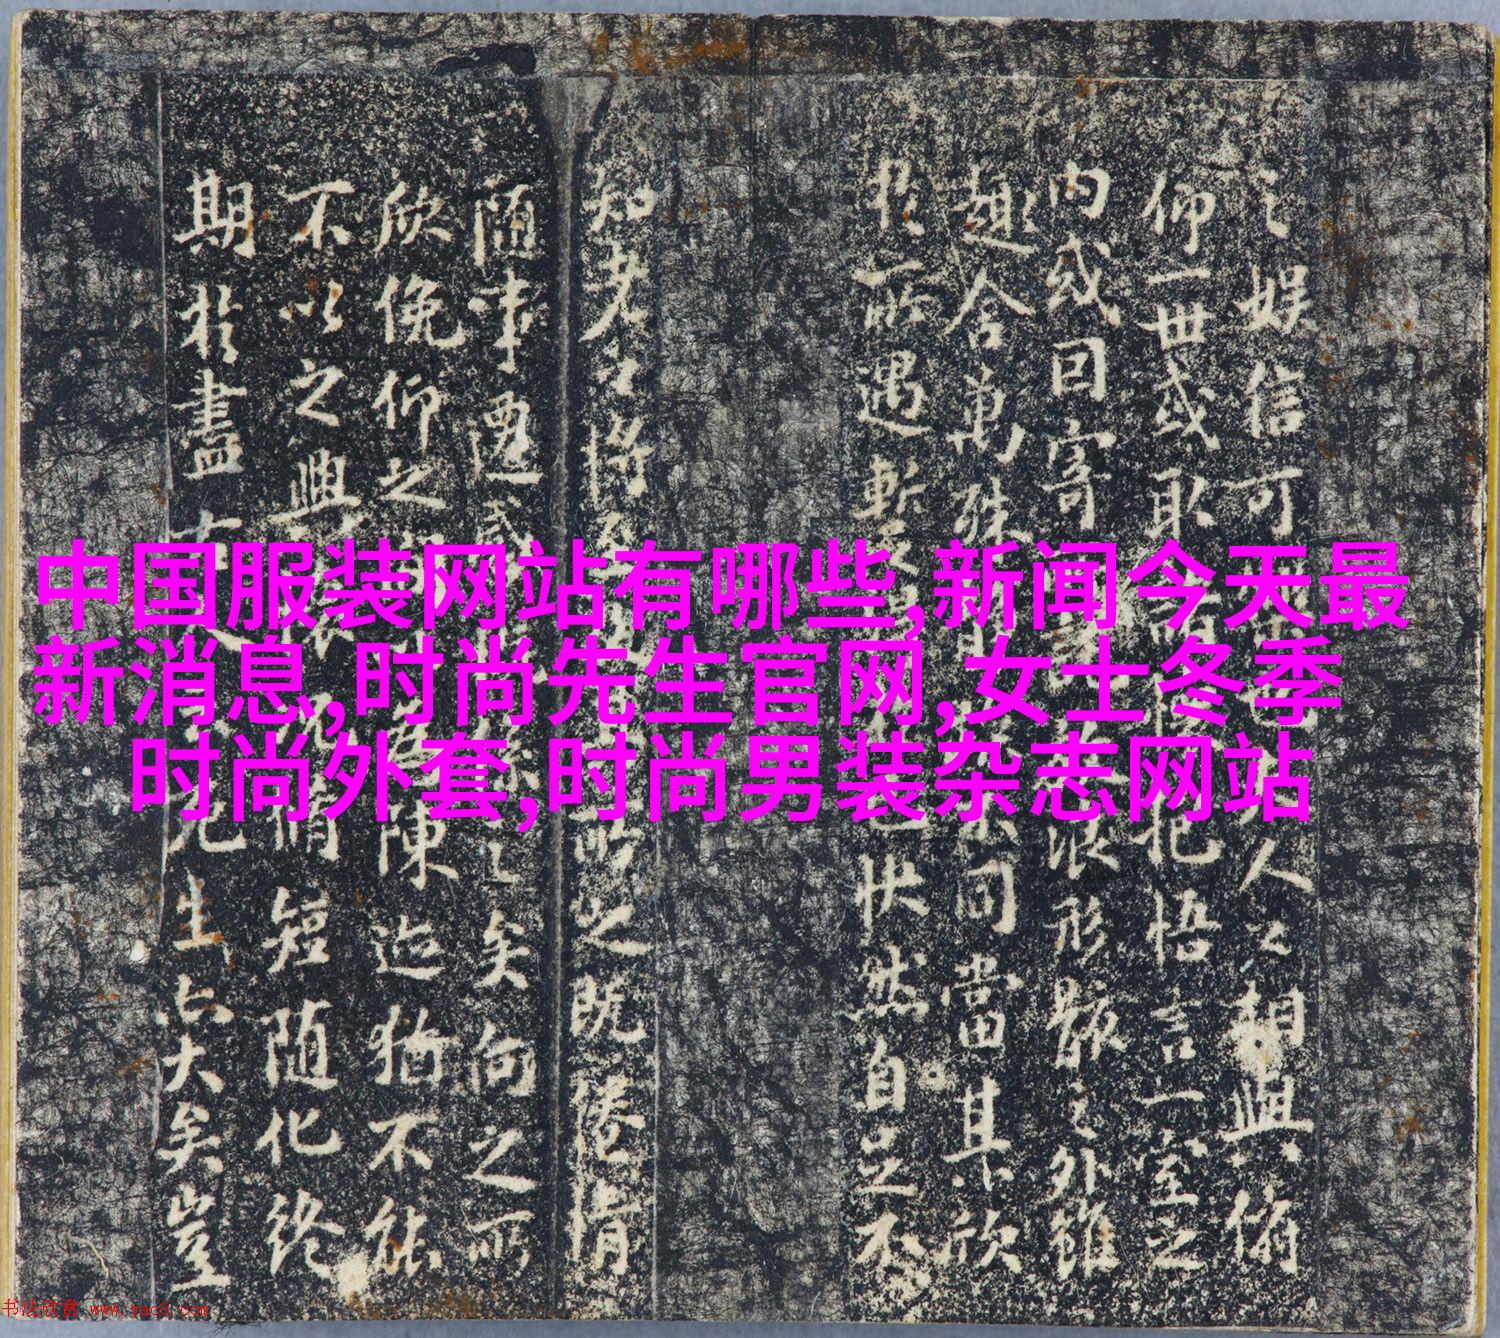 之娱信可人之相與俯
仰一世或取諸抱悟言一室之
内或因寄浪形骸之外雖
趣舍萬殊同當其欣
於所遇暫快然自足不
知老之將所之既倦情
随事遷矣向之所
欣俛仰之陳迹猶不能
不以之興脩短随化終
期於盡死生亦大矣豈
中国服装网站有哪些,新闻今天最
新消息,时尚先生官网,女士冬季
时尚外套,时尚男装杂志网站
书法欣赏 www.yac8.com